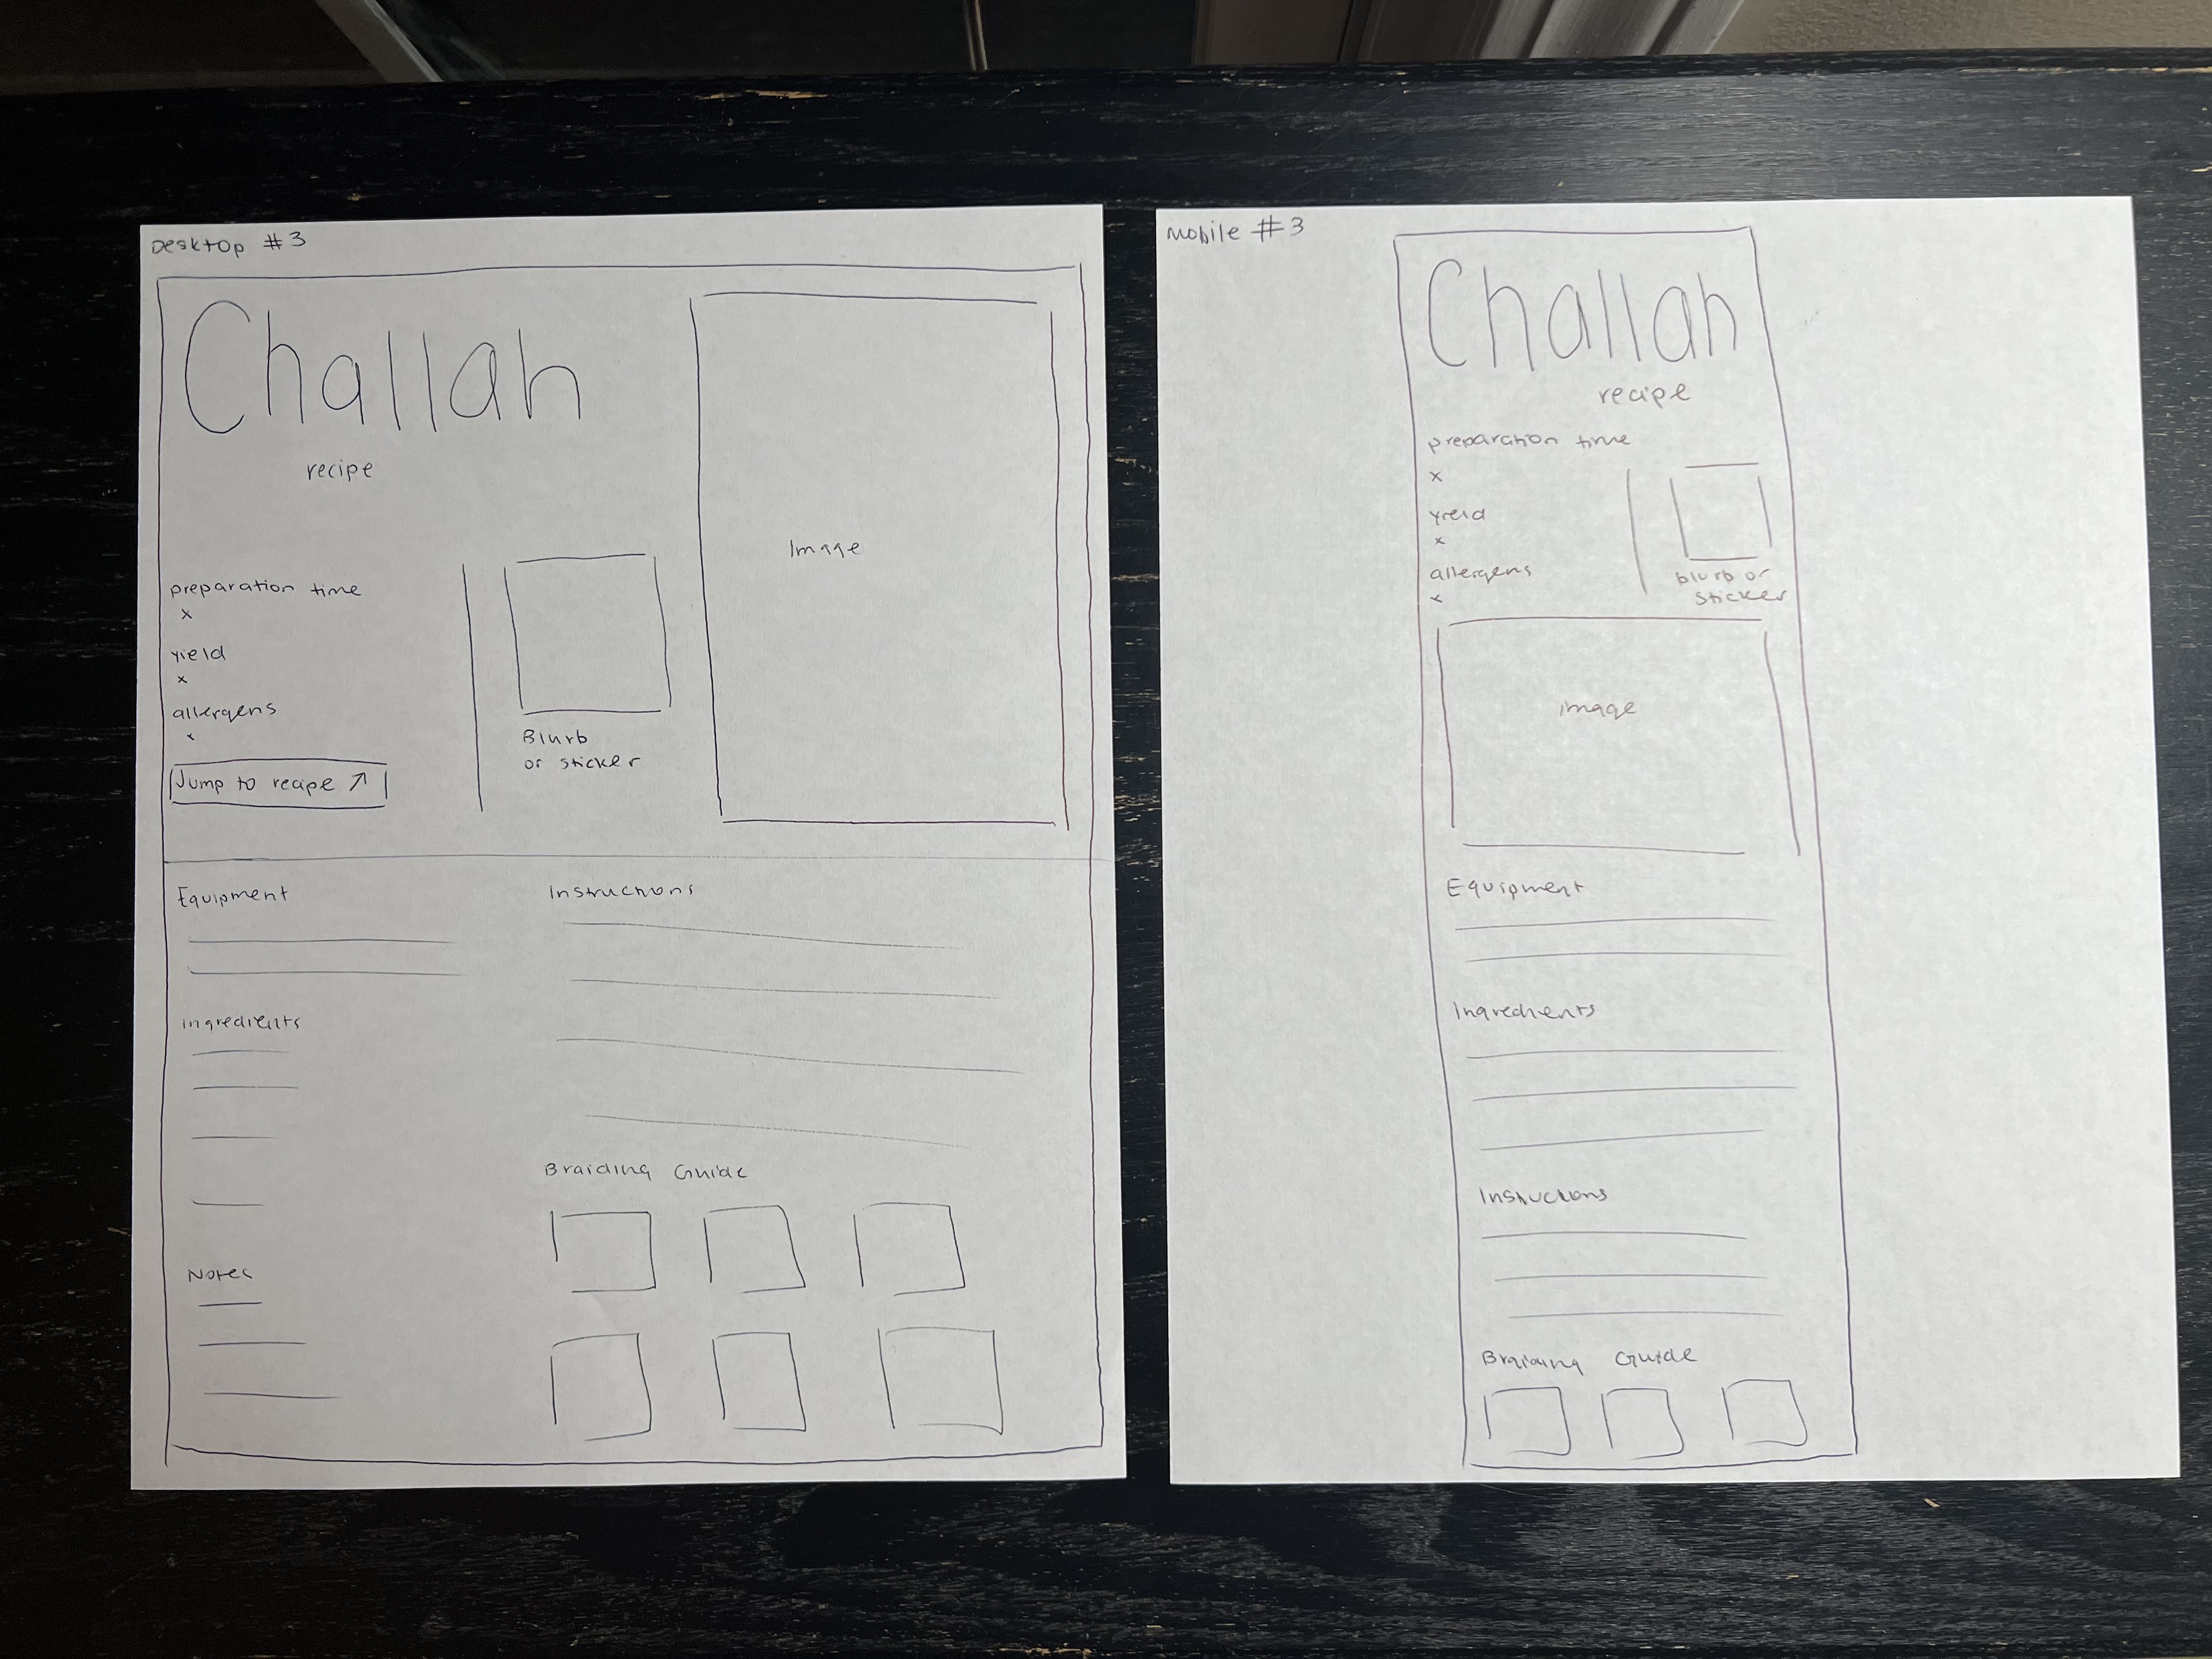 Desktop #3
Challah
recipe
Image
preparation time
x
yield
x
allergens
x
Jump to recipe ↗
Blurb
or sticker
Equipment
Instructions
ingredients
Braiding Guide
Notes
Mobile #3
Challah
recipe
preparation time
x
yield
x
allergens
x
blurb or
sticker
image
Equipment
Ingredients
Instuctions
Braiding Guide